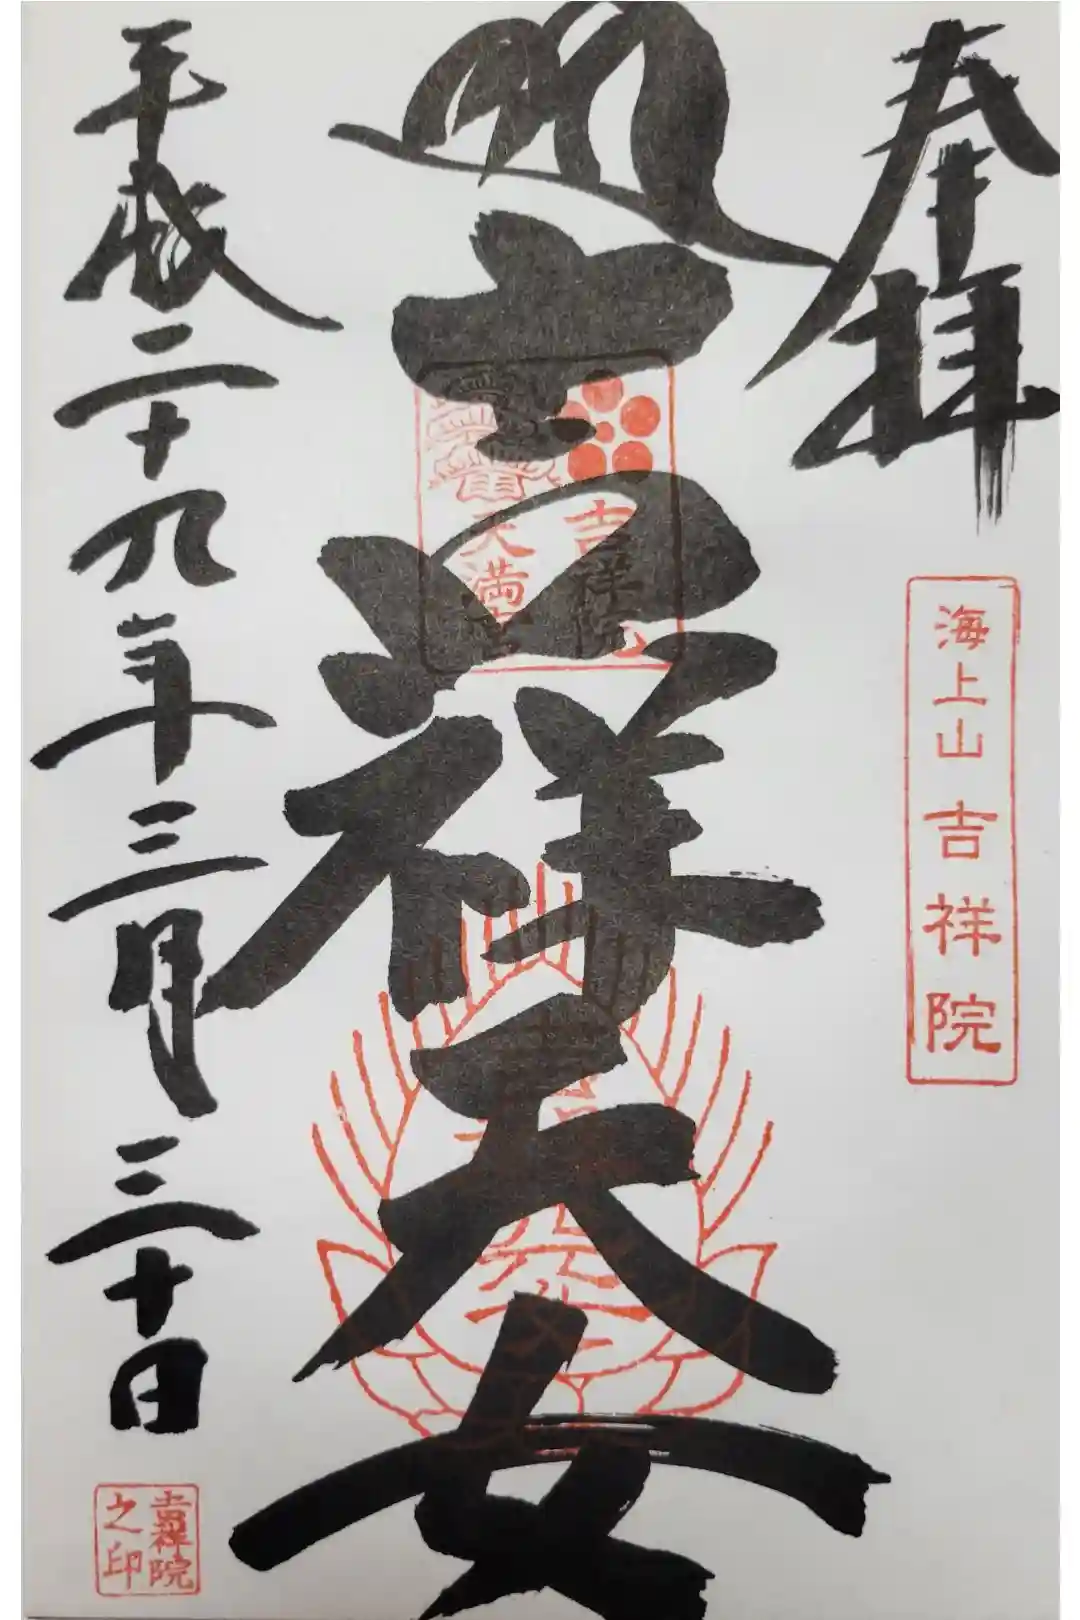 奉拝
海上山 吉祥院
吉祥天女
吉祥院
天満宮
平成二十九年三月三十日
吉祥院
之印